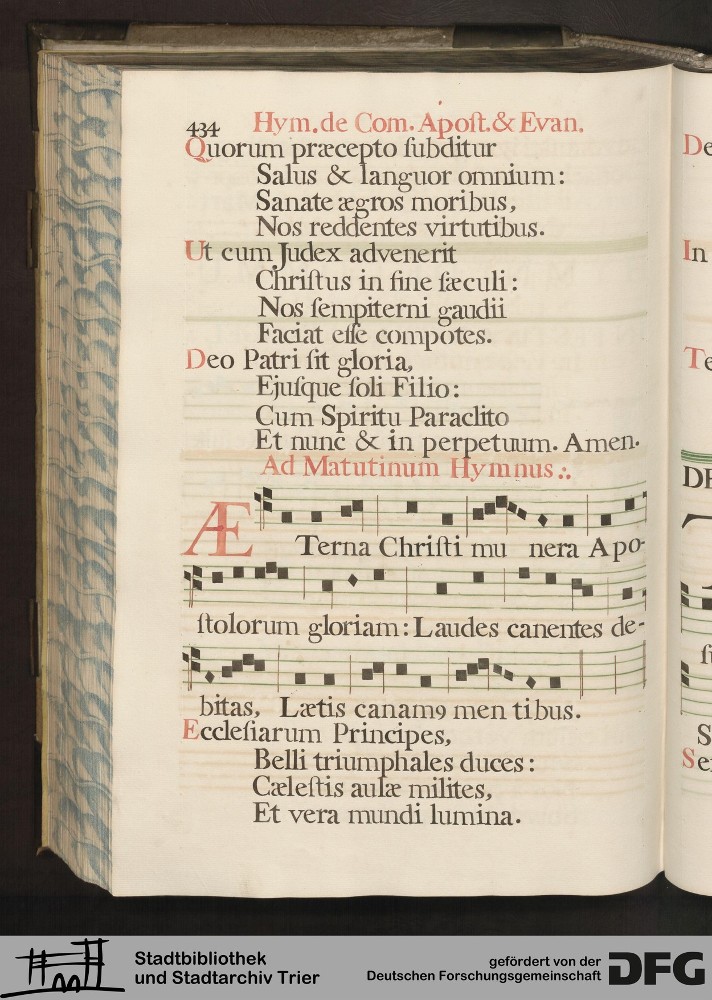 434 Hym. de Com. Apoſt. & Evan.
Quorum præcepto ſubditur
Salus & languor omnium:
Sanate ægros moribus,
Nos reddentes virtutibus.
Ut cum Judex advenerit
Chriſtus in fine ſæculi:
Nos ſempiterni gaudii
Faciat eſſe compotes.
Deo Patri ſit gloria,
Ejuſque ſoli Filio:
Cum Spiritu Paraclito
Et nunc & in perpetuum. Amen.
Ad Matutinum Hymnus:.
ÆTerna Chriſti mu nera Apo-
ſtolorum gloriam: Laudes canentes de-
bitas, Lætis canamꝰ men tibus.
Eccleſiarum Principes,
Belli triumphales duces:
Cæleſtis aulæ milites,
Et vera mundi lumina.
De
In
Te
S
Se
Stadtbibliothek
und Stadtarchiv Trier
gefördert von der
Deutschen Forschungsgemeinschaft
DFG